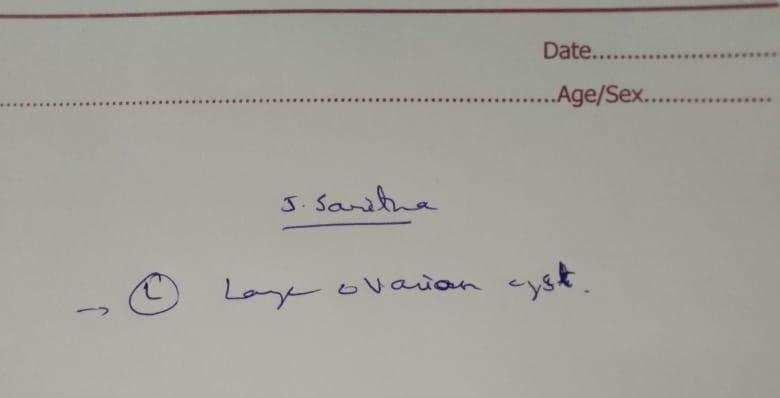 Date....................
....................Age/Sex....................
J. Saritha
→ Ⓛ Large ovarian cyst.